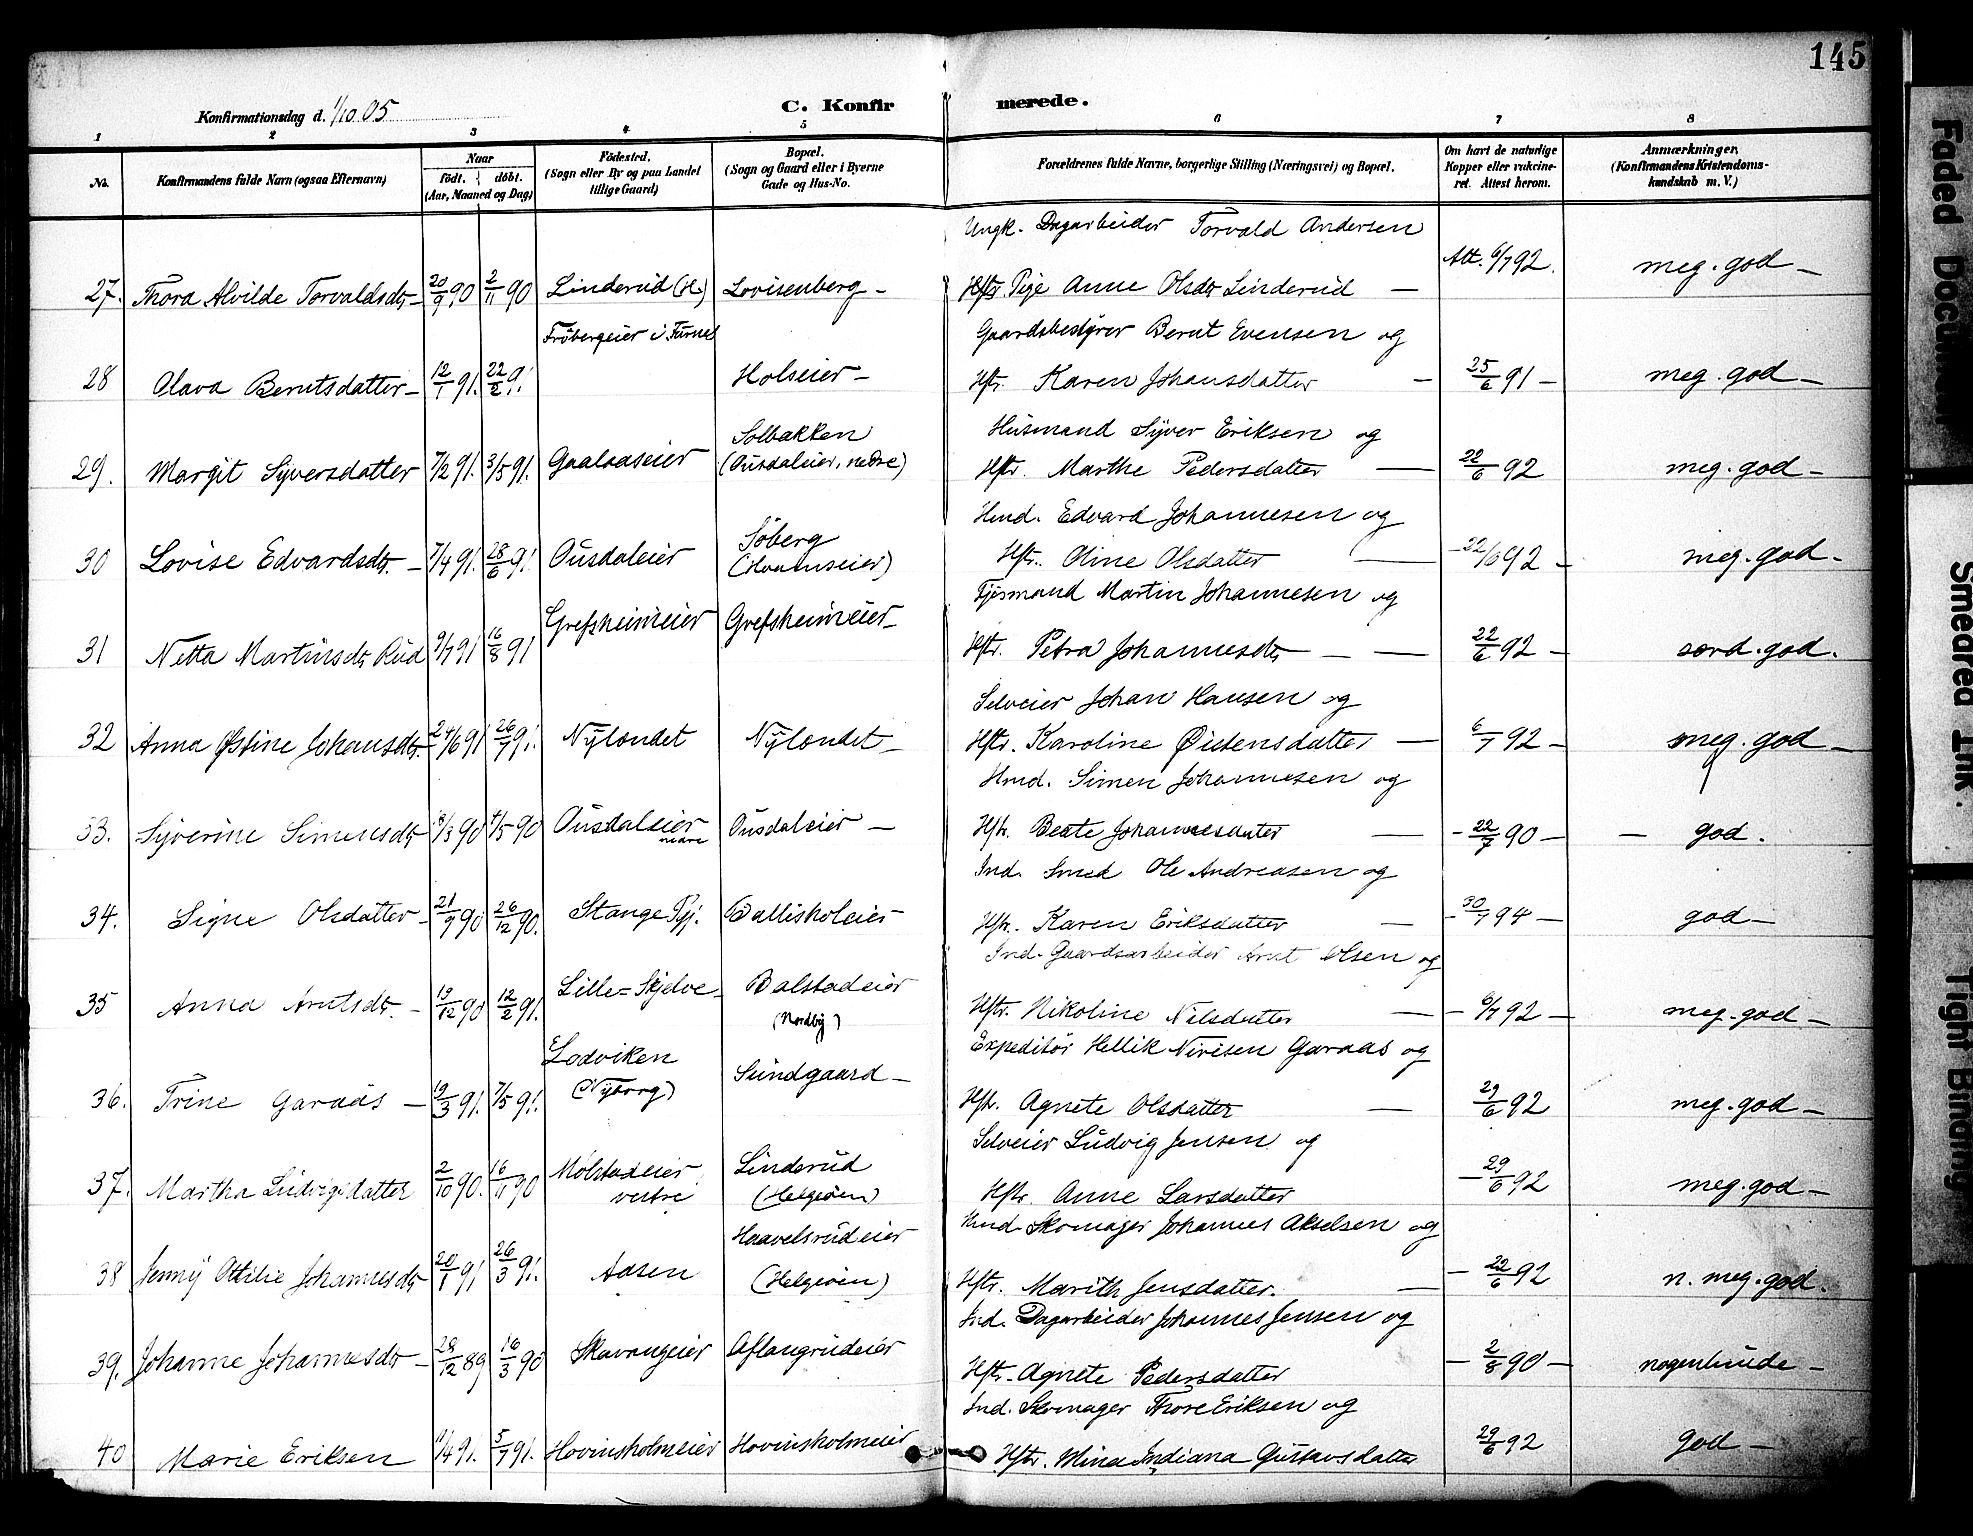 145
C. Konfirmerede.
Konfirmationsdag d. 1/10 05
1 2 3 4 5 6 7 8
No. Konfirmandens fulde Navn (ogsaa Efternavn) Naar født. døbt. (Aar, Maaned og Dag) Fødested. (Sogn eller By og paa Landet tillige Gaard) Bopæl. (Sogn og Gaard eller i Byerne Gade og Hus-No. Forældrenes fulde Navne, borgerlige Stilling (Næringsvei) og Bopæl. Om havt de naturlige Kopper eller vakcineret. Attest herom. Anmærkninger. (Konfirmandens Kristendomskundskab m. V.)
Ungk. Dagarbeider Torvald Andersen
27. Thora Alvilde Torvaldsdtr - 20/9 90 2/11 90 Linderud (H.) Lovisenberg - Pige Anne Olsdtr Linderud - Att. 6/7 92. meg. god -
Frøbergeier i Furnes Gaardsbestyrer Bernt Evensen og
28 Olava Berntsdatter - 12/1 91. 22/2 91 Holseier - Hstr. Karen Johansdatter - 25/6 91 - meg. god -
Solbakken Husmand Syver Eriksen og
29. Margit Syversdatter 7/2 91. 3/5 91. Gaalaaseier (Ousdaleier, nedre) Hstr. Marthe Pedersdatter - 22/6 92 meg. god -
Hmd. Edvard Johannesen og
30 Lovise Edvardsdtr. - 7/4 91. 28/6 91 Ousdaleier Søberg Hstr. Oline Olsdatter - 22/6 92 - meg. god -
Martin Johannesen og
31 Netta Martinsdtr Rud 9/7 91 16/8 91 Grefsheimeier Grefsheimeier - Hstr. Petra Johannesdtr - 22/6 92 - særd. god.
Selveier Johan Hansen og
32 Anna Østine Johansdtr. 24/6 91 26/7 91. Nylændet Nylændet - Hstr. Karoline Øistensdatter - 6/7 92 - meg. god -
Hmd. Simen Johannesen og
33. Syverine Simensdtr 18/3 90 4/5 90 Ousdaleier nedre Ousdaleier - Hstr. Beate Johannesdatter - 22/7 90 - - god.
Ind. Smed Ole Andreasen og
34. Signe Olsdatter - 21/9 90 26/12 90. Stange Pgj. Ballisholeier - Hstr. Karen Eriksdatter - 30/7 94 - god -
Ind. Gaardsarbeider Arnt Olsen og
35 Anna Arntsdtr. - 19/12 90 12/2 91. Lille-Skjelve - Balstadeier (Nordby) Hstr. Nikoline Nilsdatter - 6/7 92 - meg. god -
Expeditør Hellik Nirisen Garaas og
36. Trine Garaas - 19/3 91. 7/5 91. Lodviken (Nyborg) Sundgaard - Hstr. Agnete Olsdatter - 29/6 92 meg. god -
Selveier Ludvig Jensen og
37. Martha Ludvigsdatter 2/10 90. 16/11 90 Molstadeier vestre Linderud (Helgeøen) Hstr. Anne Larsdatter - 29/6 92 meg. god -
Hmd. Skomager Johannes Akselsen og
38 Jenny Ottilie Johannesdtr 20/1 91 26/3 91. Aasen Haavelsrudeier (Helgeøen) Hstr. Marith Jensdatter. - 22/6 92 n. meg. god.
Ind. Dagarbeider Johannes Jensen og
39. Johanne Johannesdtr - 28/12 89 16/3 90 Skavangeier Aflangrudeier Hstr. Agnete Pedersdatter - 2/8 90 - nogenlunde -
Ind. Skomager Thore Eriksen og
40 Marie Eriksen 11/4 91. 5/7 91. Hovinsholmeier Hovinsholmeier Hstr. Mina Indiana Gustavsdatter 29/6 92 god -
Faded Document
Smeared Ink.
Tight Binding